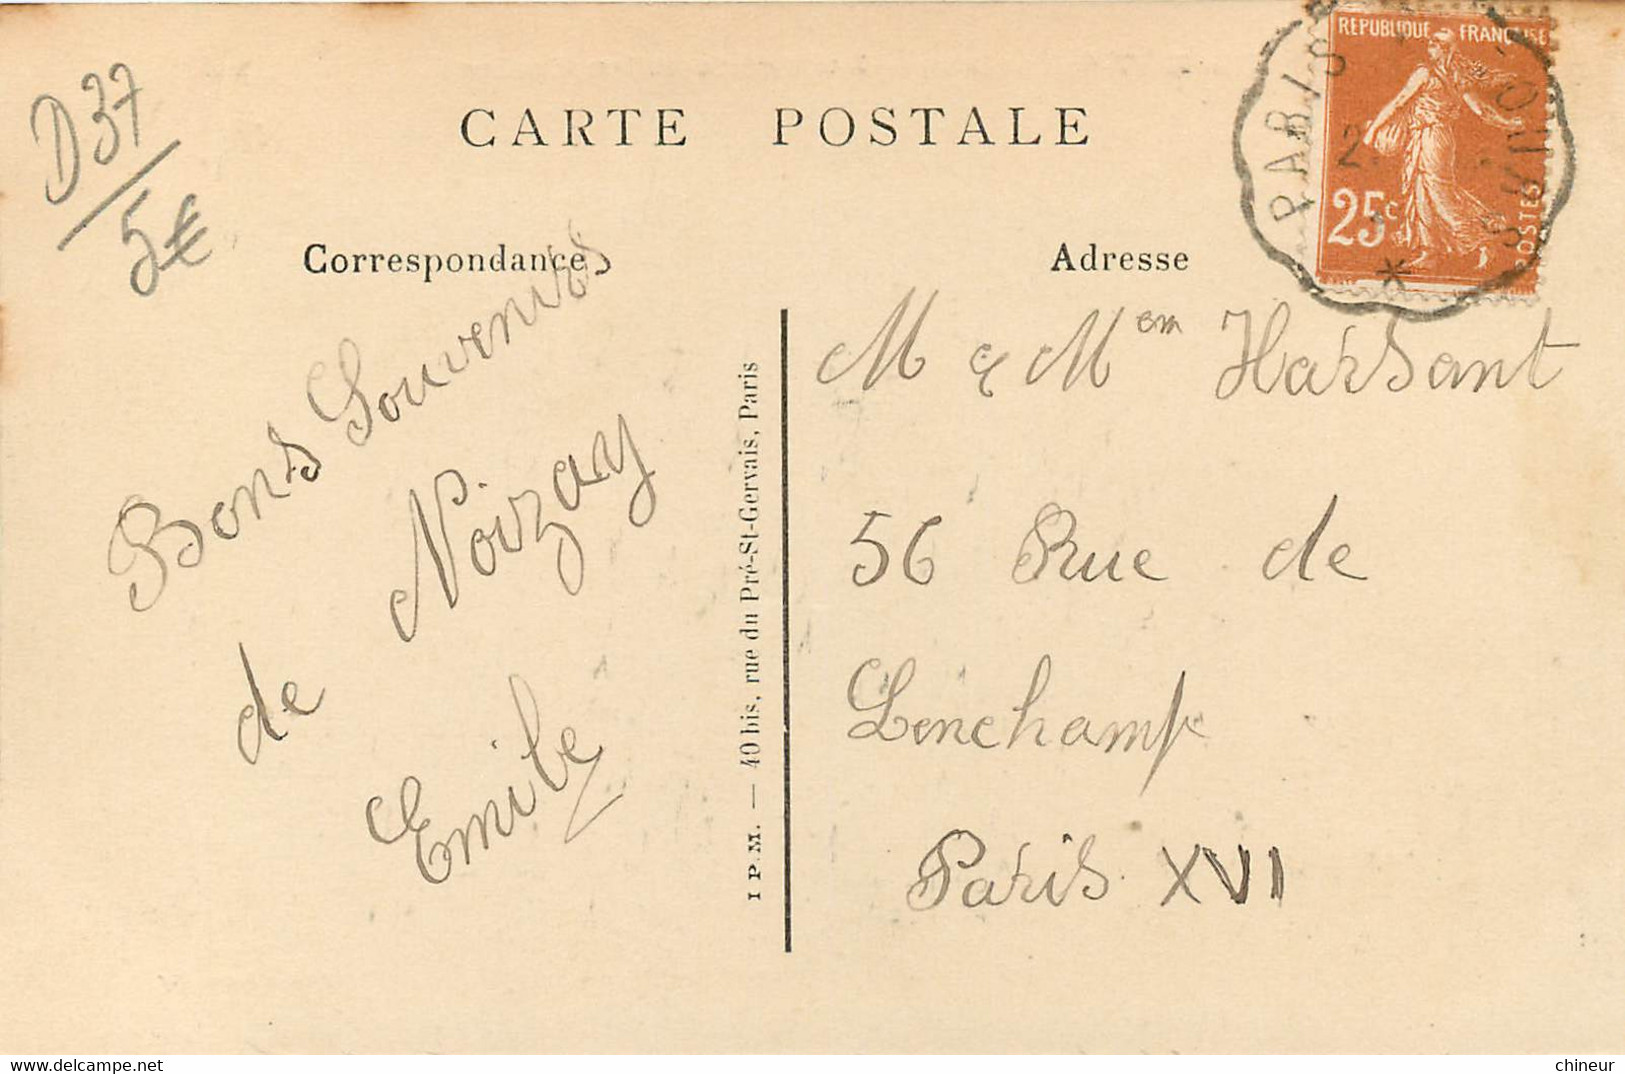 D37
5€
CARTE POSTALE
REPUBLIQUE FRANÇAISE
25c
POSTES
PARIS
TOURS
*
Correspondance
Adresse
Bons Souvenirs
de Noizay
Emile
I P. M. — 40 bis, rue du Pré-St-Gervais, Paris
M & Mem Harsant
56 Rue de
Lonchamp
Paris XVI
Delcampe.net
chineur